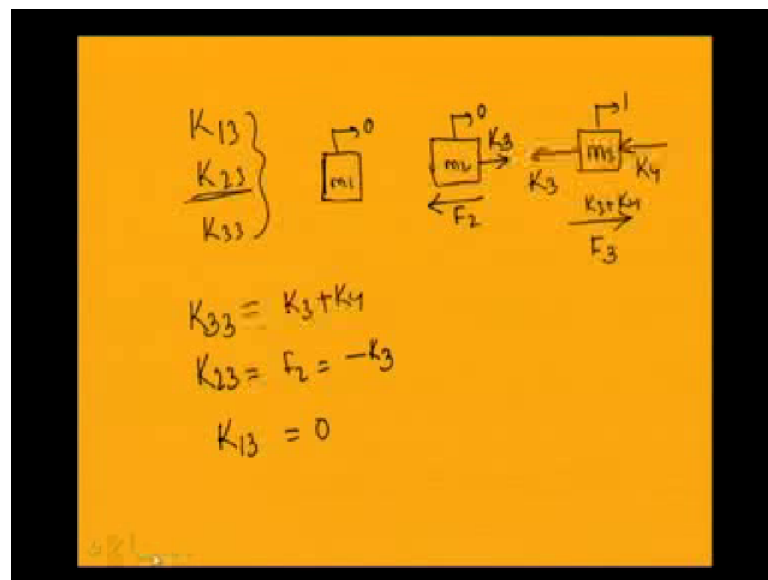 K13
K23
K33
m1
0
m2
0
K3
F2
m3
1
K3
K4
K3+K4
F3
K33 = K3+K4
K23 = F2 = -K3
K13 = 0